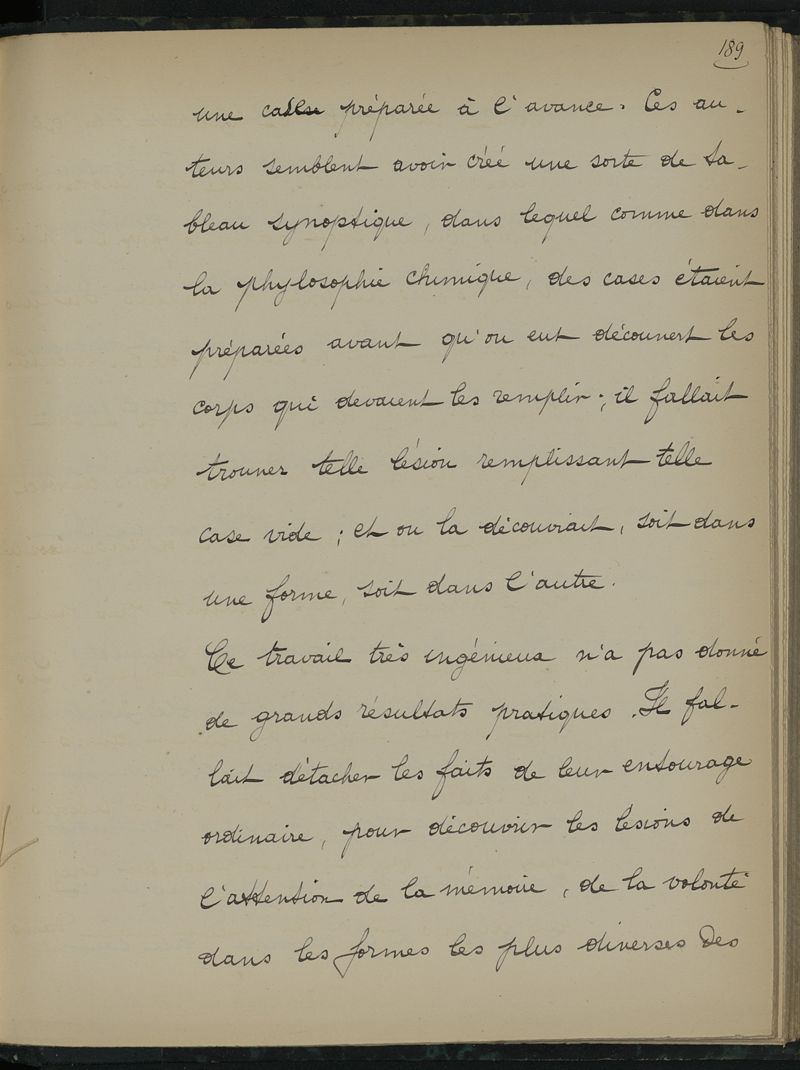 189
une case préparée à l'avance. Ces au-
teurs semblent avoir créé une sorte de ta-
bleau synoptique, dans lequel comme dans
la phylosophie chimique, des cases étaient
préparées avant qu'on eut découvert les
corps qui devaient les remplir ; il fallait
trouver telle lésion remplissant telle
case vide ; et on la découvrait, soit dans
une forme, soit dans l'autre.
Ce travail très ingénieux n'a pas donné
de grands résultats pratiques. Il fal-
lait détacher les faits de leur entourage
ordinaire, pour découvrir les lésions de
l'attention de la mémoire, de la volonté
dans les formes les plus diverses des